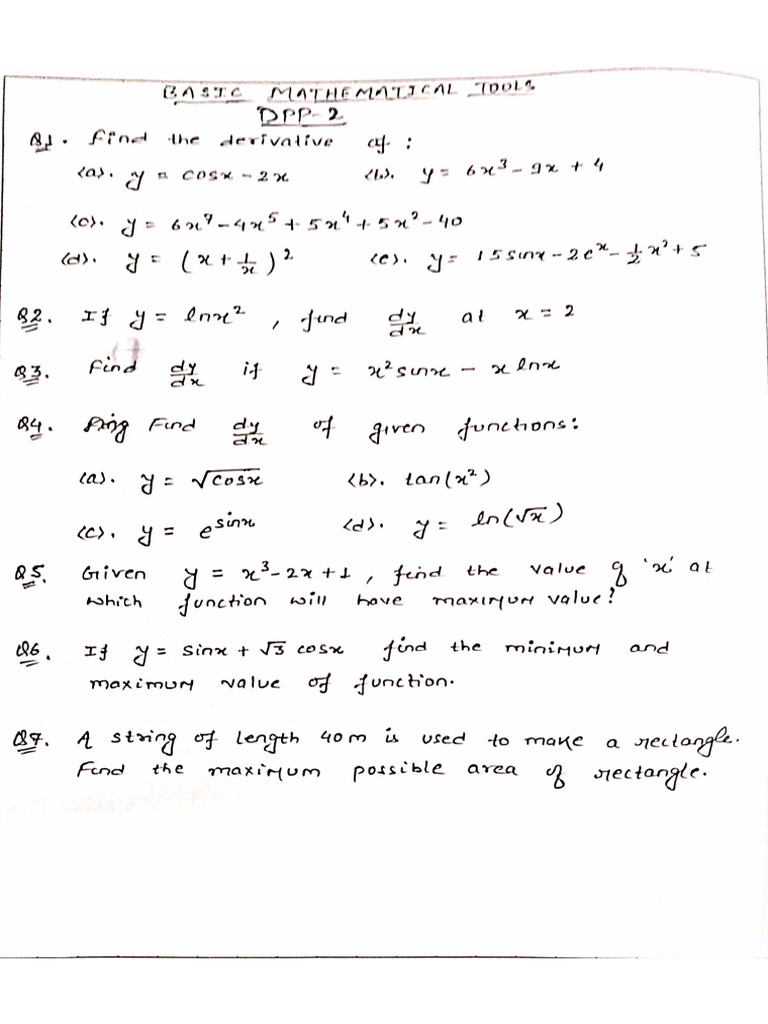 BASIC MATHEMATICAL TOOLS
DPP-2
Q1. Find the derivative of :
(a). y = cosx - 2x (b). y = 6x³ - 9x + 4
(c). y = 6x⁷ - 4x⁵ + 5x⁴ + 5x² - 40
(d). y = (x + 1/x)² (e). y = 15 sinx - 2eˣ - 1/2 x² + 5
Q2. If y = lnx² , find dy/dx at x = 2
Q3. Find dy/dx if y = x² sinx - x lnx
Q4. Find dy/dx of given functions:
(a). y = √cosx (b). tan(x²)
(c). y = e^sinx (d). y = ln(√x)
Q5. Given y = x³ - 2x + 1 , find the value of 'x' at
which function will have maximum value?
Q6. If y = sinx + √3 cosx find the minimum and
maximum value of function.
Q7. A string of length 40m is used to make a rectangle.
Find the maximum possible area of rectangle.